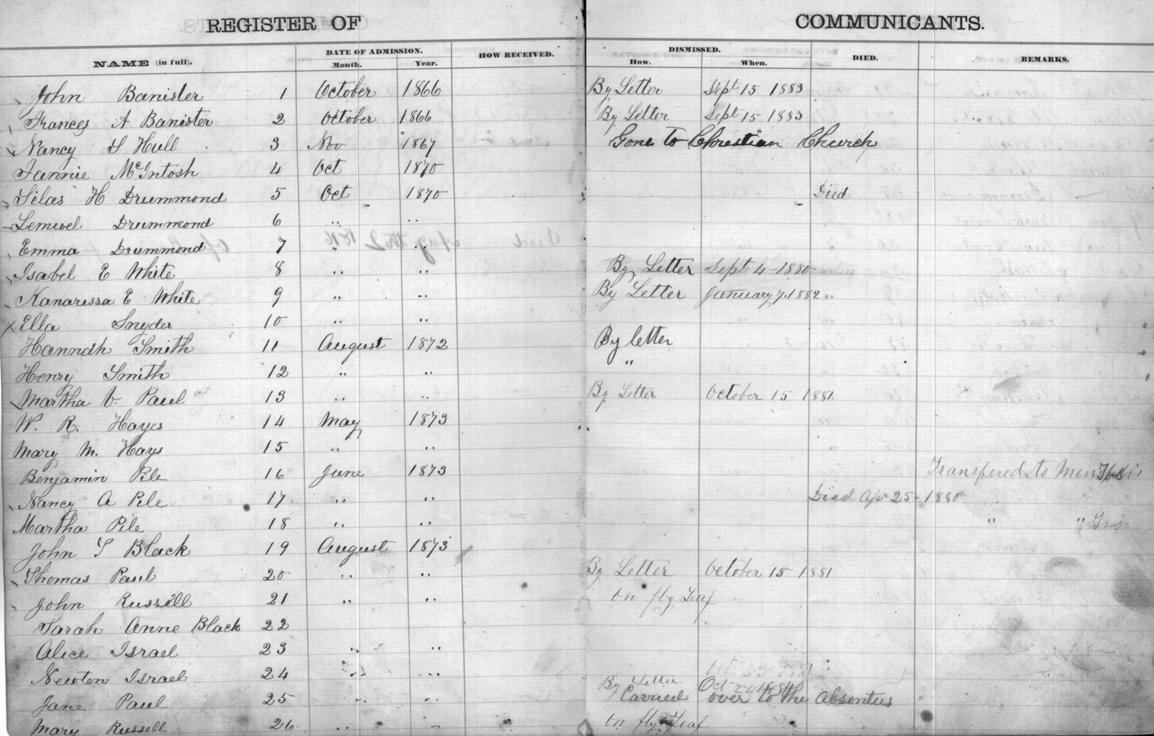 REGISTER OF COMMUNICANTS.
NAME (in full). DATE OF ADMISSION. Month. Year. HOW RECEIVED. DISMISSED. How. When. DIED. REMARKS.
John Banister 1 October 1866 By Letter Sept 15 1883
Frances A Banister 2 October 1866 By Letter Sept 15 1883
Nancy S Hull 3 Nov 1867 Gone to Christian Church
Fannie McIntosh 4 Oct 1870
Silas H Drummond 5 Oct 1870 Died
Lemuel Drummond 6 " "
Emma Drummond 7 " "
Isabel E White 8 " " By Letter Sept 4 - 1880
Kanarissa E White 9 " " By Letter January 7. 1882
Ella Snyder 10 " "
Hannah Smith 11 August 1872 By letter
Henry Smith 12 " " "
Martha V Paul 13 " " By Letter October 15 1881
W. R. Hayes 14 May 1873
Mary M. Hays 15 " "
Benjamin Pile 16 June 1873 Transfered to
Nancy A Pile 17 " " Died Apr 25 - 1880
Martha Pile 18 " " " "
John S Black 19 August 1873
Thomas Paul 20 " " By Letter October 15 1881
John Russell 21 " " on fly Leaf
Sarah Anne Black 22
Alice Israel 23 " "
Newton Israel 24 " " By Letter Oct
Jane Paul 25 " " Carried over to the Absentees
Mary Russell 26 " " on fly Leaf